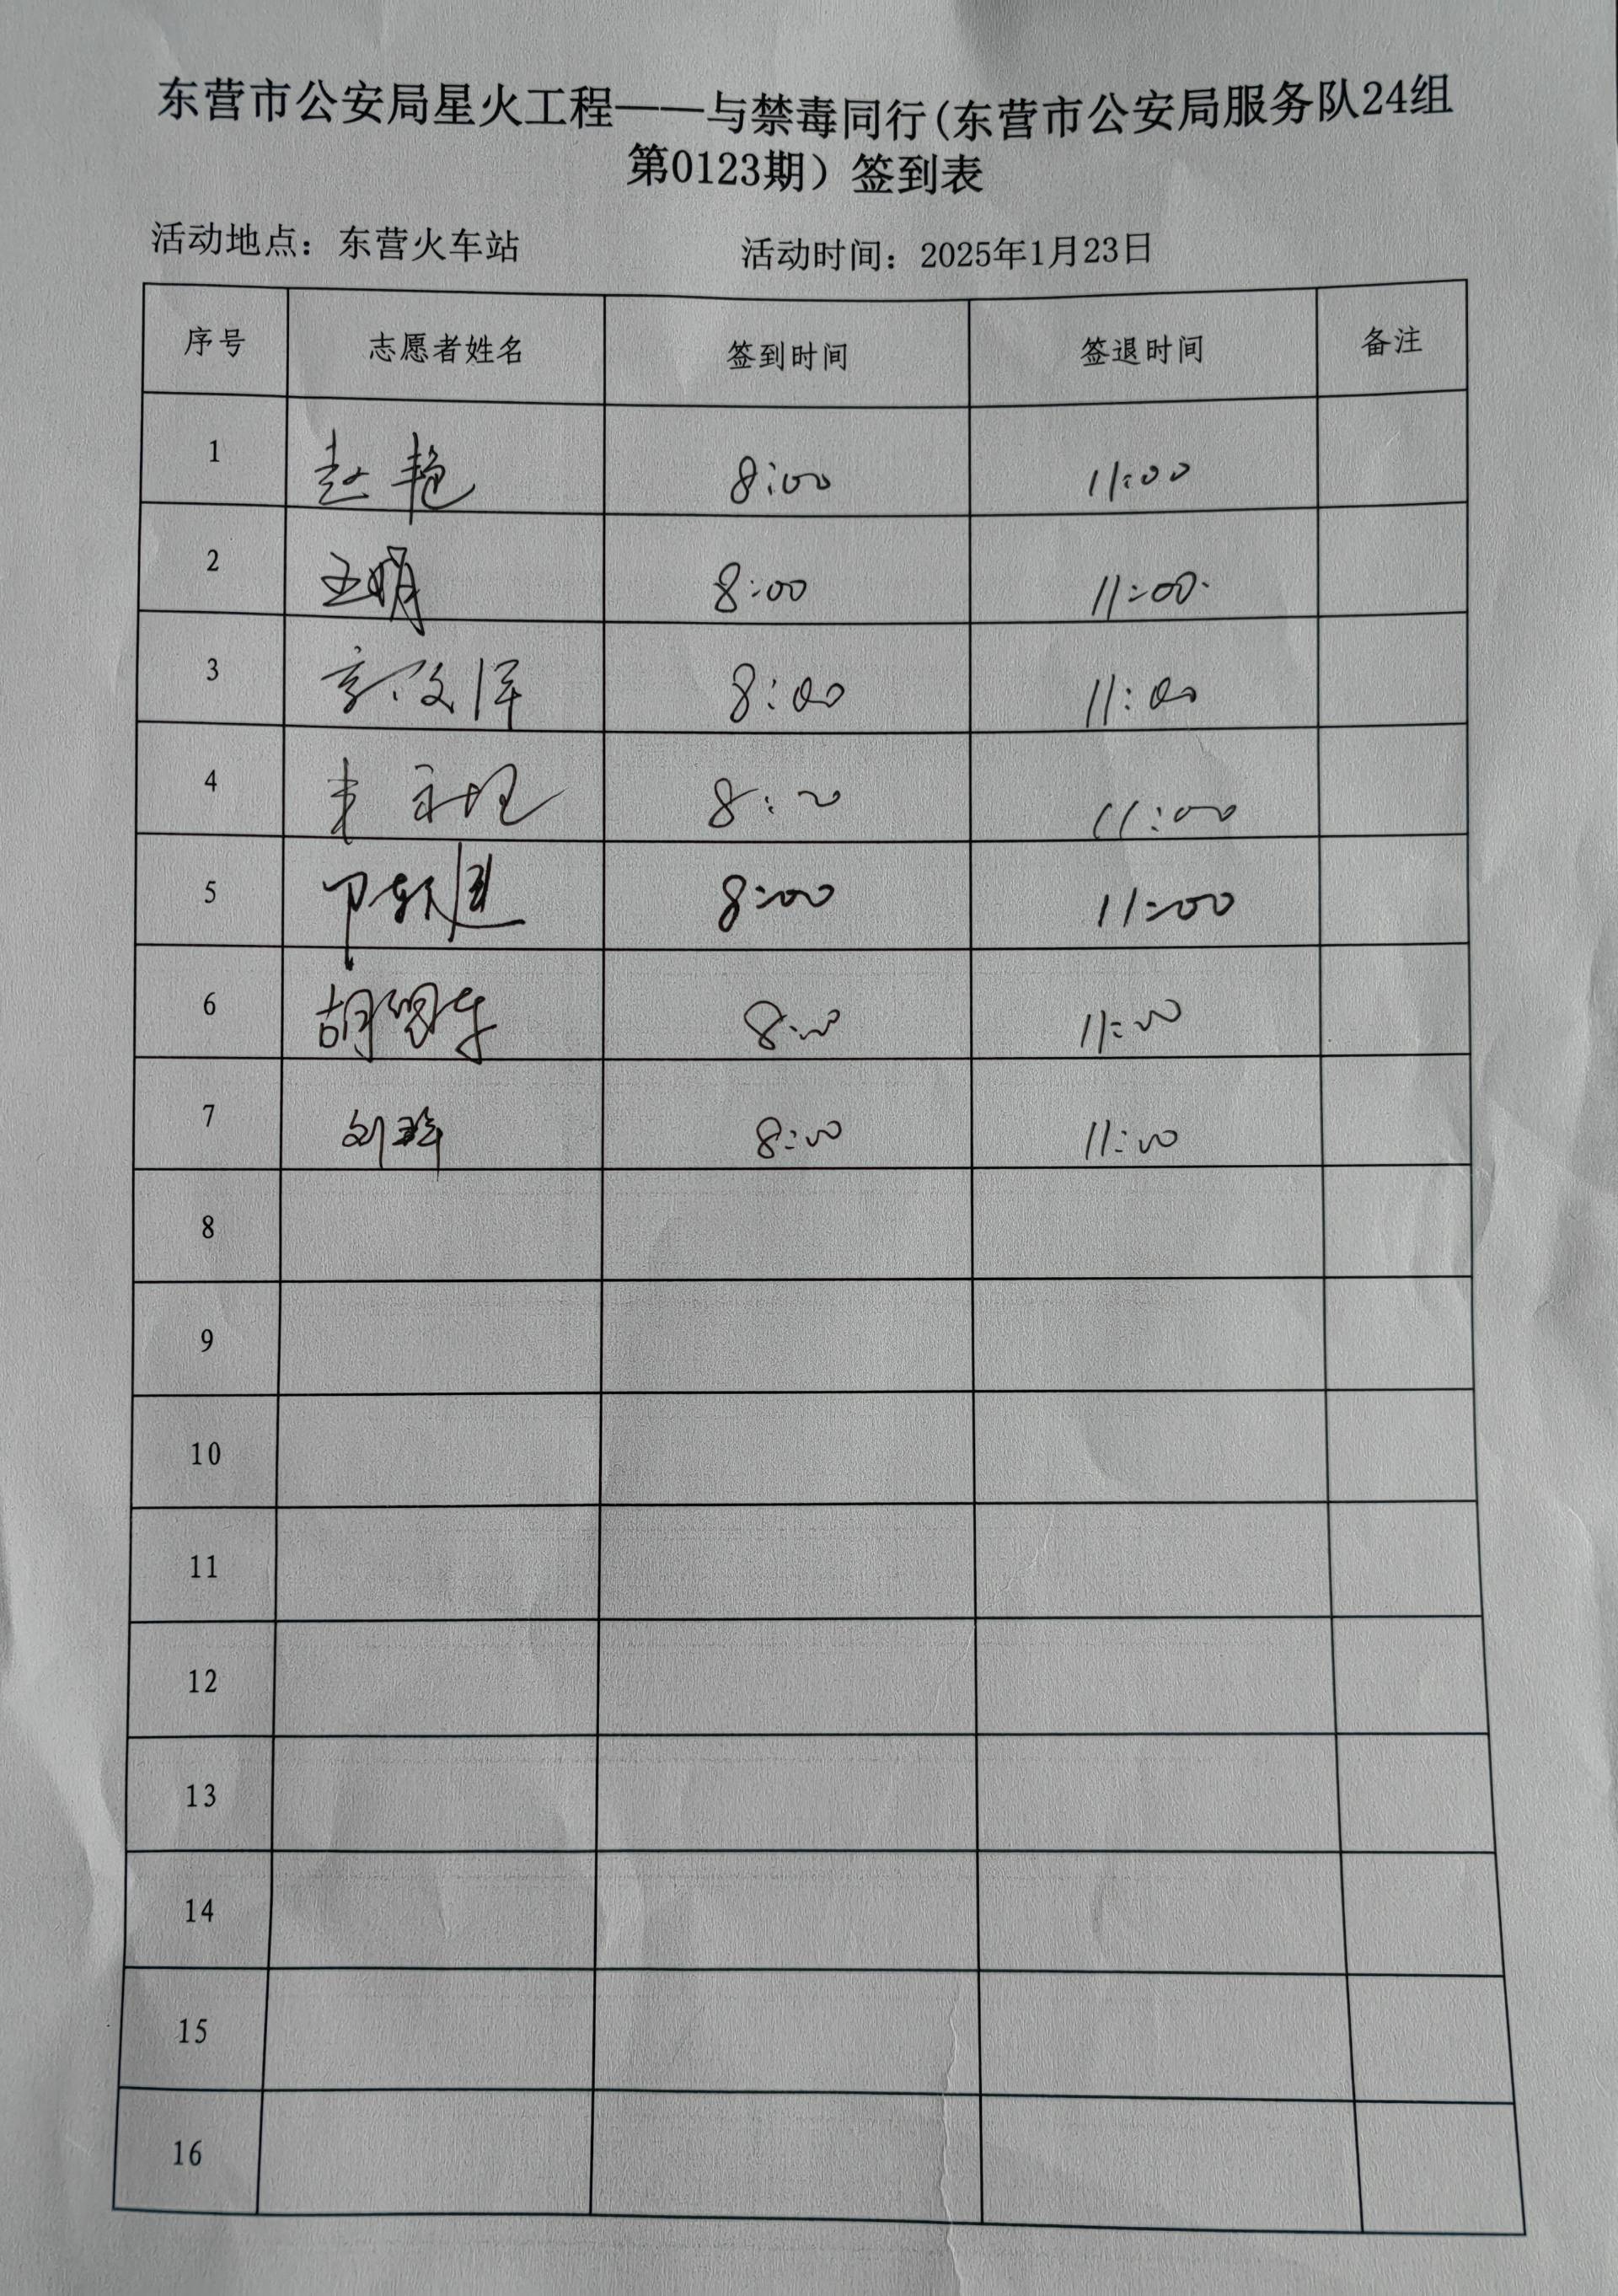 东营市公安局星火工程——与禁毒同行(东营市公安局服务队24组
第0123期）签到表
活动地点：东营火车站 活动时间：2025年1月23日
序号 志愿者姓名 签到时间 签退时间 备注
1 赵艳 8:00 11:00
2 王明 8:00 11:00
3 8:00 11:00
4 8:00 11:00
5 8:00 11:00
6 胡 8:00 11:00
7 刘 8:00 11:00
8
9
10
11
12
13
14
15
16